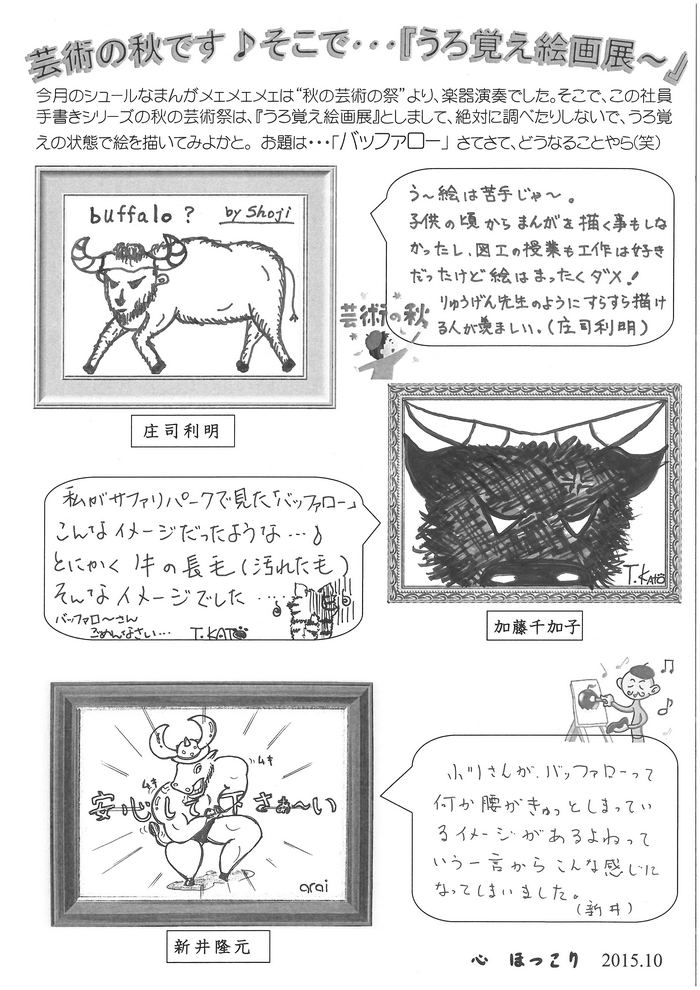 芸術の秋です♪そこで・・・『うろ覚え絵画展～』
今月のシュールなまんがメェメェメェは“秋の芸術の祭”より、楽器演奏でした。そこで、この社員
手書きシリーズの秋の芸術祭は、『うろ覚え絵画展』としまして、絶対に調べたりしないで、うろ覚
えの状態で絵を描いてみよかと。 お題は・・・「バッファロー」 さてさて、どうなることやら(笑)
buffalo ? by Shoji
庄司利明
う～絵は苦手じゃ～。
子供の頃からまんがを描く事もしな
かったし、図工の授業も工作は好き
だったけど絵はまったくダメ!
りゅうげん先生のようにすらすら描け
る人が羨ましい。(庄司利明)
芸術の秋
T.KATO
加藤千加子
私がサファリパークで見た「バッファロー」
こんなイメージだったような…♪
とにかく 牛の長毛(汚れた毛)
そんなイメージでした ……
バッファローさん
ごめんなさい…
T.KATO
ムキ
ムキ
安心し
さぁ～い
arai
新井隆元
小川さんが、バッファローって
何か腰がきゅっとしまってい
るイメージがあるよねって
いう一言から こんな感じに
なってしまいました。
(新井)
心 ほっこり 2015.10